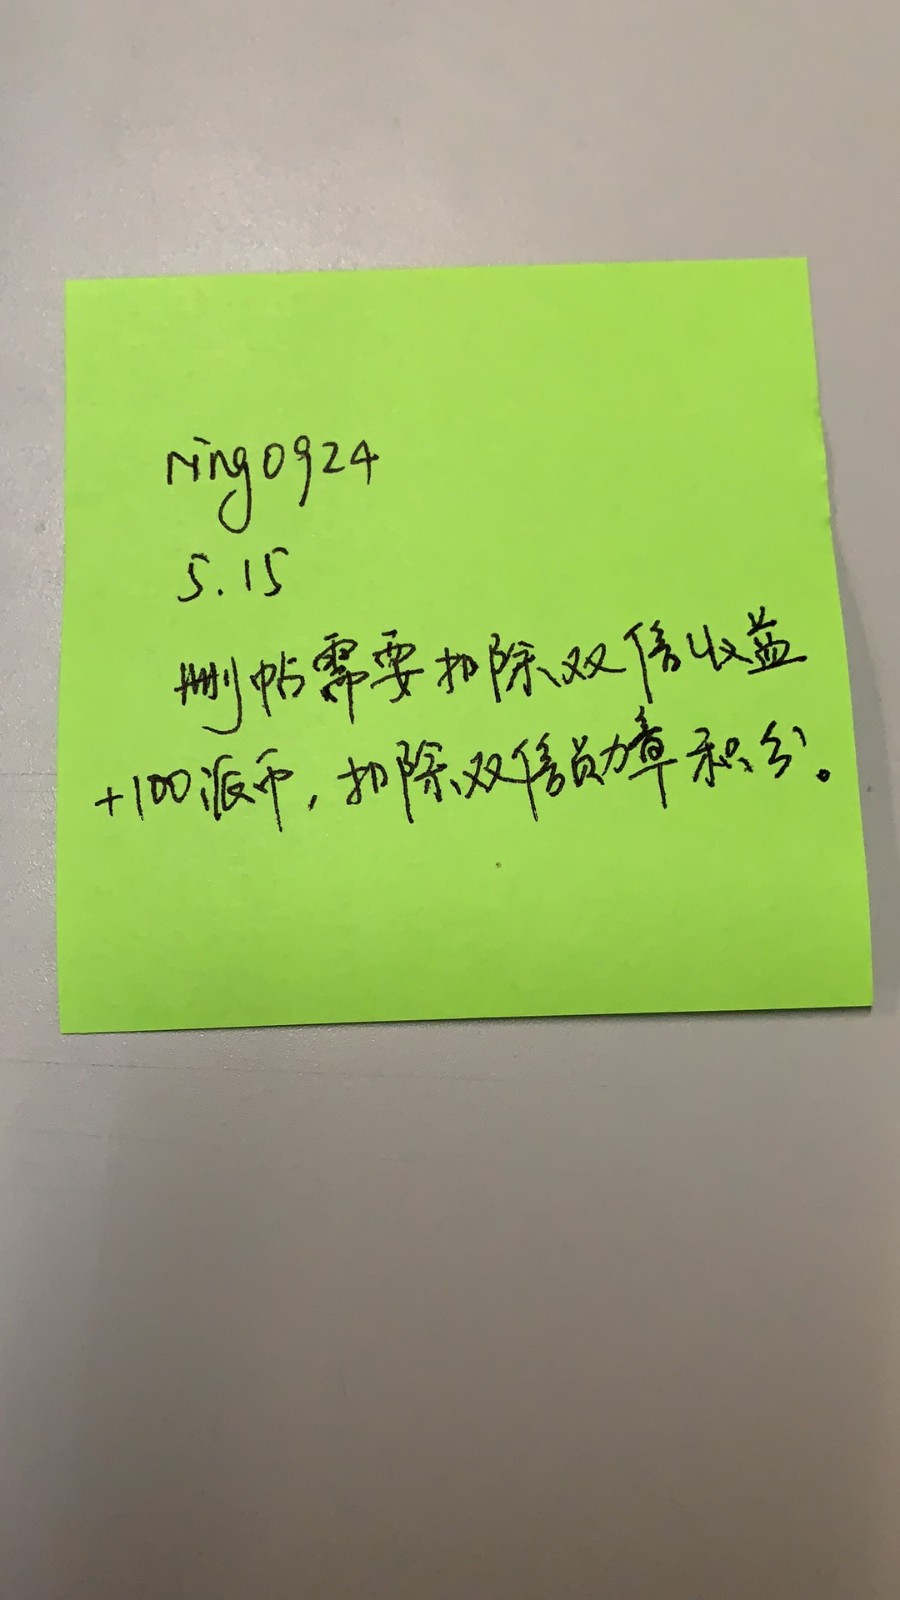 ring0924
5.15
删帖需要扣除双倍收益
+100派币，扣除双倍勋章积分。